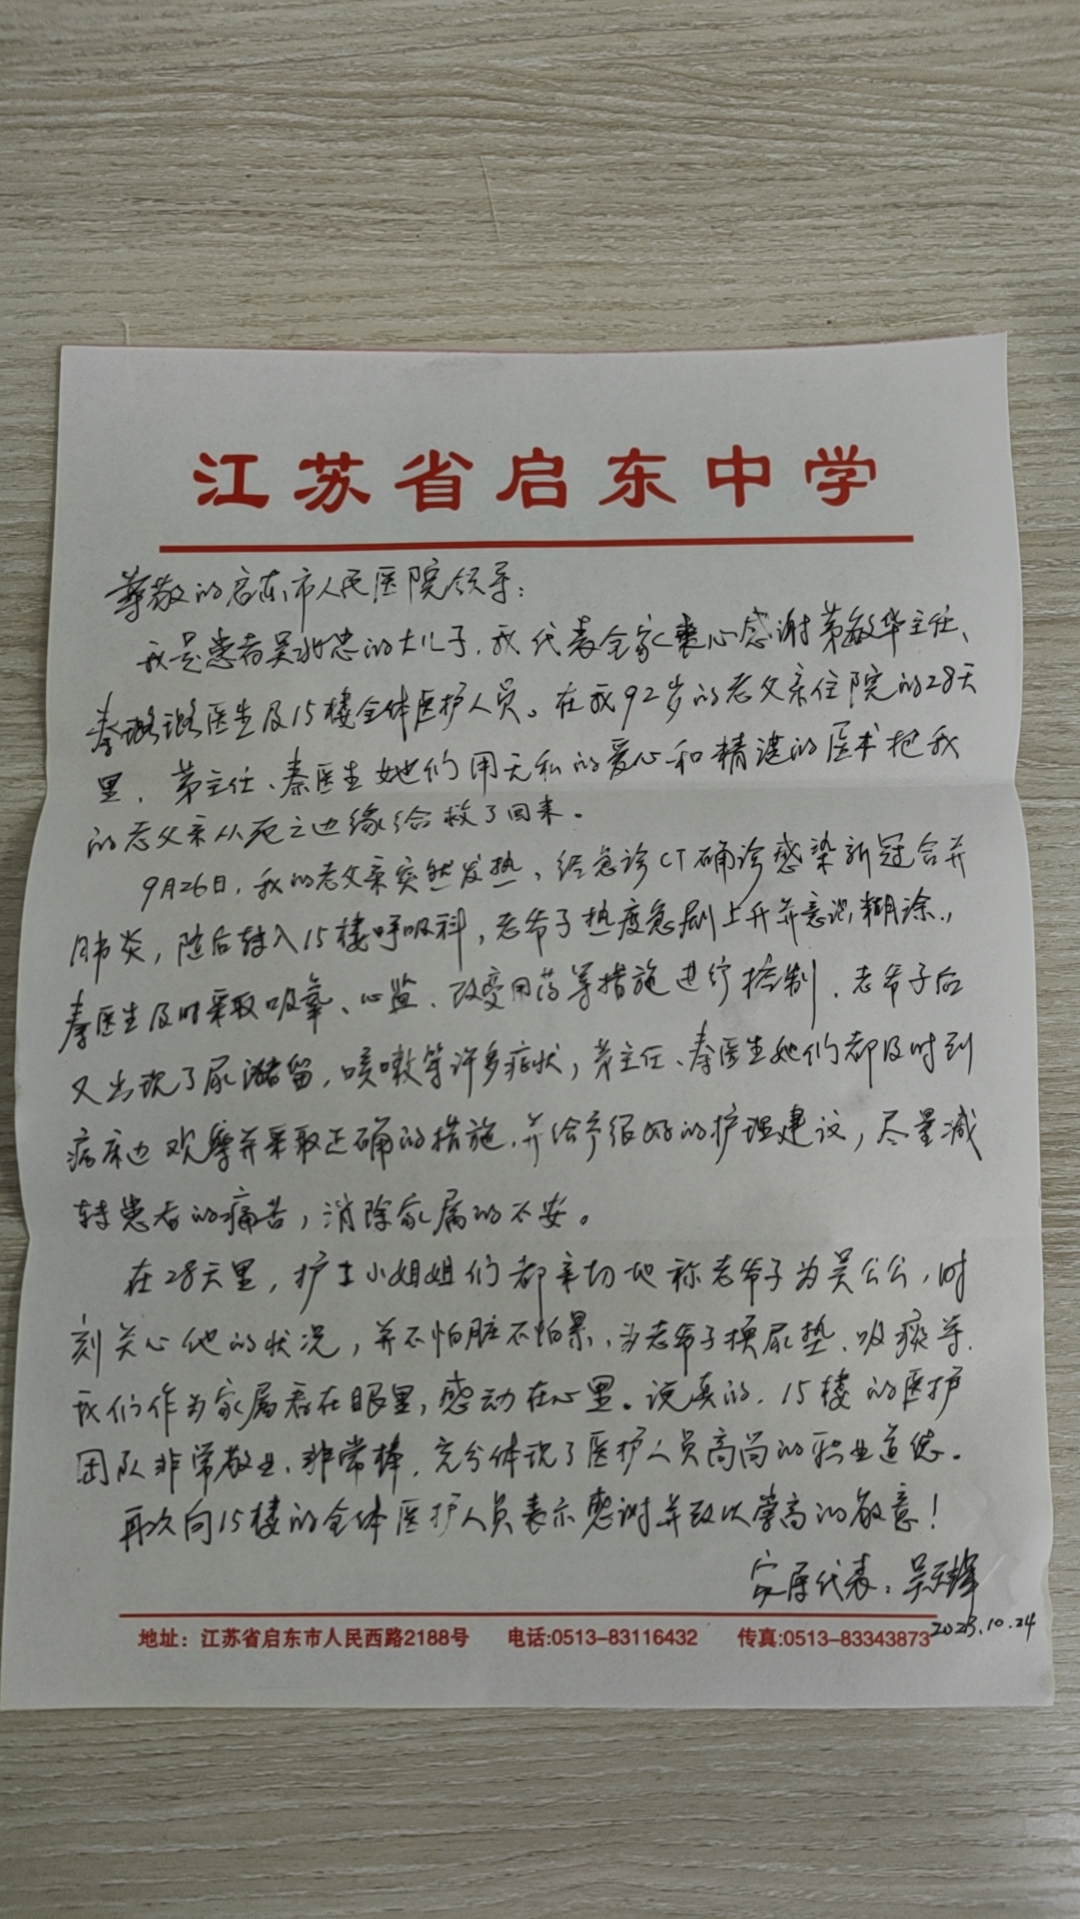 江苏省启东中学
尊敬的启东市人民医院领导：
我是患者吴 忠的大儿子，我代表全家衷心感谢茅敏华主任、
秦璐璐医生及15楼全体医护人员。在我92岁的老父亲住院的28天
里，茅主任、秦医生她们用无私的爱心和精湛的医术把我
的老父亲从死亡边缘给救了回来。
9月26日，我的老父亲突然发热，经急诊CT确诊感染新冠合并
肺炎，随后转入15楼呼吸科，老爷子热度急剧上升并意识糊涂，
秦医生及时采取吸氧、心监、改变用药等措施进行控制，老爷子后
又出现了尿潴留，咳嗽等许多症状，茅主任、秦医生她们都及时到
病床边观察并采取正确的措施，并给予很好的护理建议，尽量减
轻患者的痛苦，消除家属的不安。
在28天里，护士小姐姐们都亲切地称老爷子为吴公公，时
刻关心他的状况，并不怕脏不怕累，为老爷子换尿垫、吸痰等，
我们作为家属看在眼里，感动在心里。说真的，15楼的医护
团队非常敬业、非常棒，充分体现了医护人员高尚的职业道德。
再次向15楼的全体医护人员表示感谢并致以崇高的敬意！
家属代表：吴
2023.10.24
地址：江苏省启东市人民西路2188号 电话:0513-83116432 传真:0513-83343873